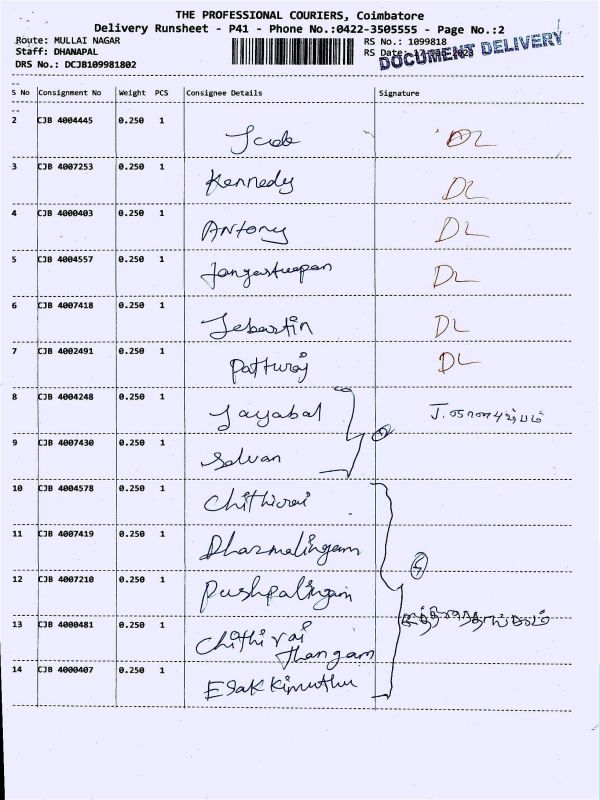 THE PROFESSIONAL COURIERS, Coimbatore
Delivery Runsheet - P41 - Phone No.:0422-3505555 - Page No.:2
Route: MULLAI NAGAR
Staff: DHANAPAL
DRS No.: DCJB109981802
RS No.: 1099818
RS Date:
DOCUMENT DELIVERY
S No Consignment No Weight PCS Consignee Details Signature
2 CJB 4004445 0.250 1 Jude DL
3 CJB 4007253 0.250 1 Kennedy DL
4 CJB 4000403 0.250 1 Antony DL
5 CJB 4004557 0.250 1 DL
6 CJB 4007418 0.250 1 Jebastin DL
7 CJB 4002491 0.250 1 Patturaj DL
8 CJB 4004248 0.250 1 Jayabal J.
9 CJB 4007430 0.250 1 Selvan
10 CJB 4004578 0.250 1 Chithirai
11 CJB 4007419 0.250 1 Dharmalingam
12 CJB 4007210 0.250 1 Pushpalingam
13 CJB 4000481 0.250 1 Chithirai
thangam
14 CJB 4000407 0.250 1 Esakkimuthu